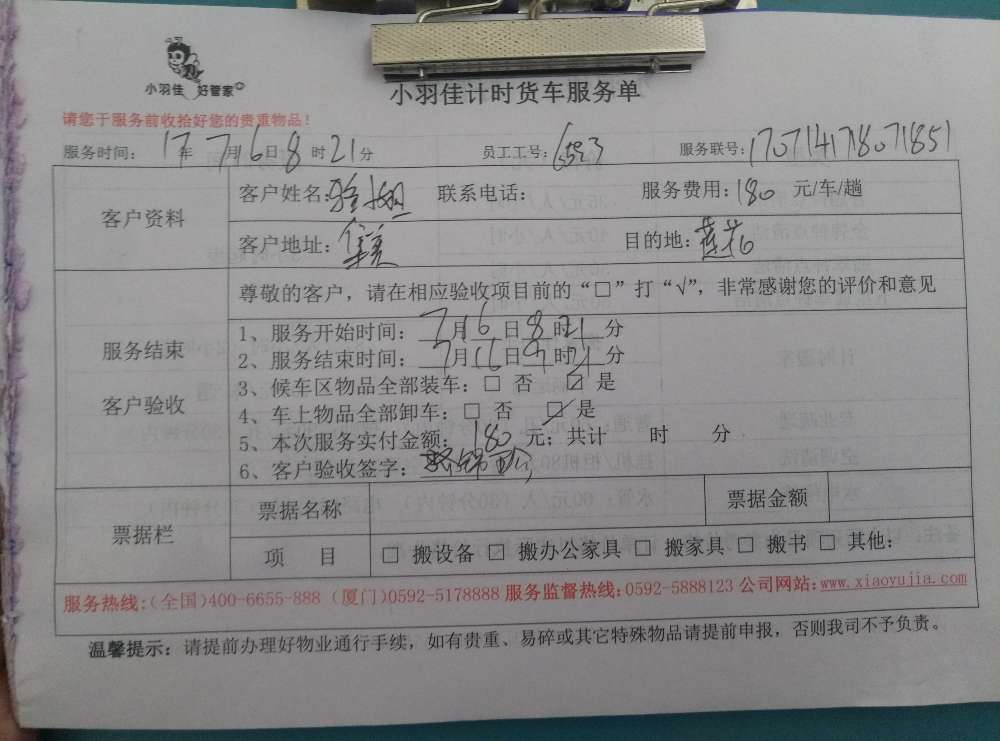 小羽佳 好管家
小羽佳计时货车服务单
请您于服务前收拾好您的贵重物品！
服务时间：17年7月16日8时21分 员工工号：6593 服务联号：1707141718071851
客户资料 客户姓名： 联系电话： 服务费用：180 元/车/趟
客户地址：集美 目的地：莲花
尊敬的客户，请在相应验收项目前的“□”打“√”，非常感谢您的评价和意见
服务结束
客户验收
1、服务开始时间：7月16日8时21分
2、服务结束时间：7月16日9时21分
3、候车区物品全部装车：□ 否 ☑ 是
4、车上物品全部卸车：□ 否 ☑ 是
5、本次服务实付金额：180 元；共计 时 分
6、客户验收签字：
票据栏 票据名称 票据金额
项 目 □ 搬设备 □ 搬办公家具 □ 搬家具 □ 搬书 □ 其他：
服务热线：（全国）400-6655-888（厦门）0592-5178888 服务监督热线：0592-5888123 公司网站：www.xiaoyujia.com
温馨提示：请提前办理好物业通行手续，如有贵重、易碎或其它特殊物品请提前申报，否则我司不予负责。